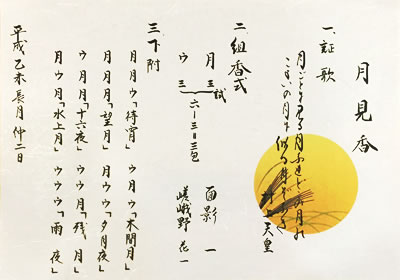 月見香
一、証歌
月ごとに見る月なれどこの月の
こよいの月に似る月ぞなき
村上天皇
二、組香式
月 三 試
ウ 三
六-三=三包
面影 一
嵯峨野 花一
三、下附
月月ウ「待宵」 ウウ月「木間月」
月月月「望月」 月ウウ「夕月夜」
ウ月月「十六夜」 ウ月ウ「残月」
月ウ月「水上月」 ウウウ「雨夜」
平成乙未長月仲二日